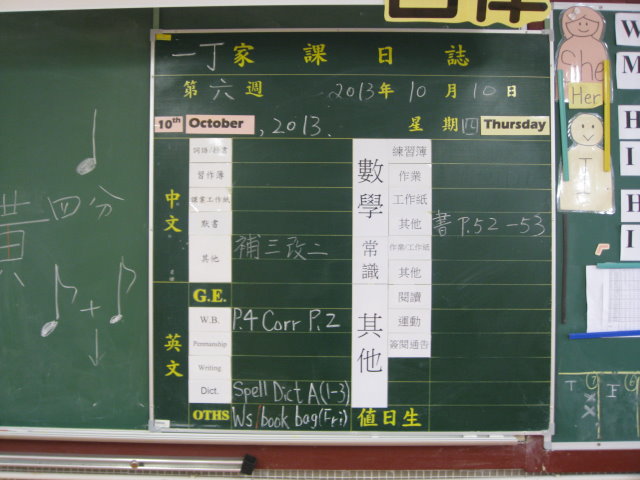 一丁家課日誌
第六週 2013年10月10日
10th October, 2013. 星期四 Thursday
中文
詞語/抄書
習作簿
課業工作紙
默書
其他 補三改二
英文
G.E.
W.B. P.4 Corr P.2
Penmanship
Writing
Dict. Spell Dict A(1-3)
OTHS Ws/book bag(Fri)
數學
練習簿
作業
工作紙
其他 書 P.52-53
常識
作業/工作紙
其他
其他
閱讀
運動
簽閱通告
值日生
四分
She
Her
I
W
M
H
I
H
I